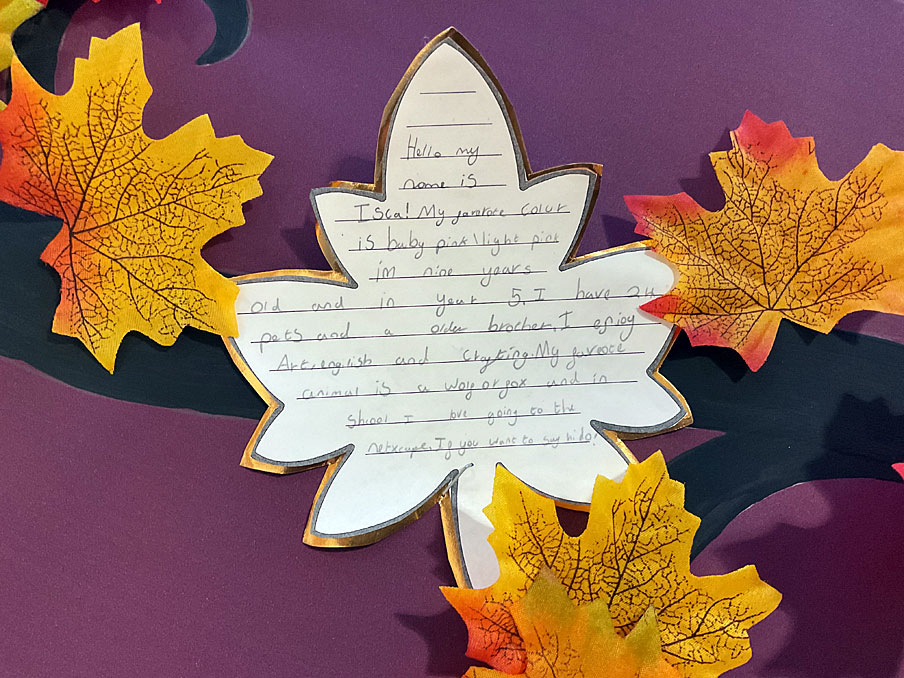 Hello my
name is
Isla! My favrote colur
is baby pink\light pink
im nine years
old and in year 5. I have 24
pets and a older brother. I enjoy
Art, english and crafting. My favorote
animal is a wolf or fox and in
shcool I love going to the
If you want to say hi do!